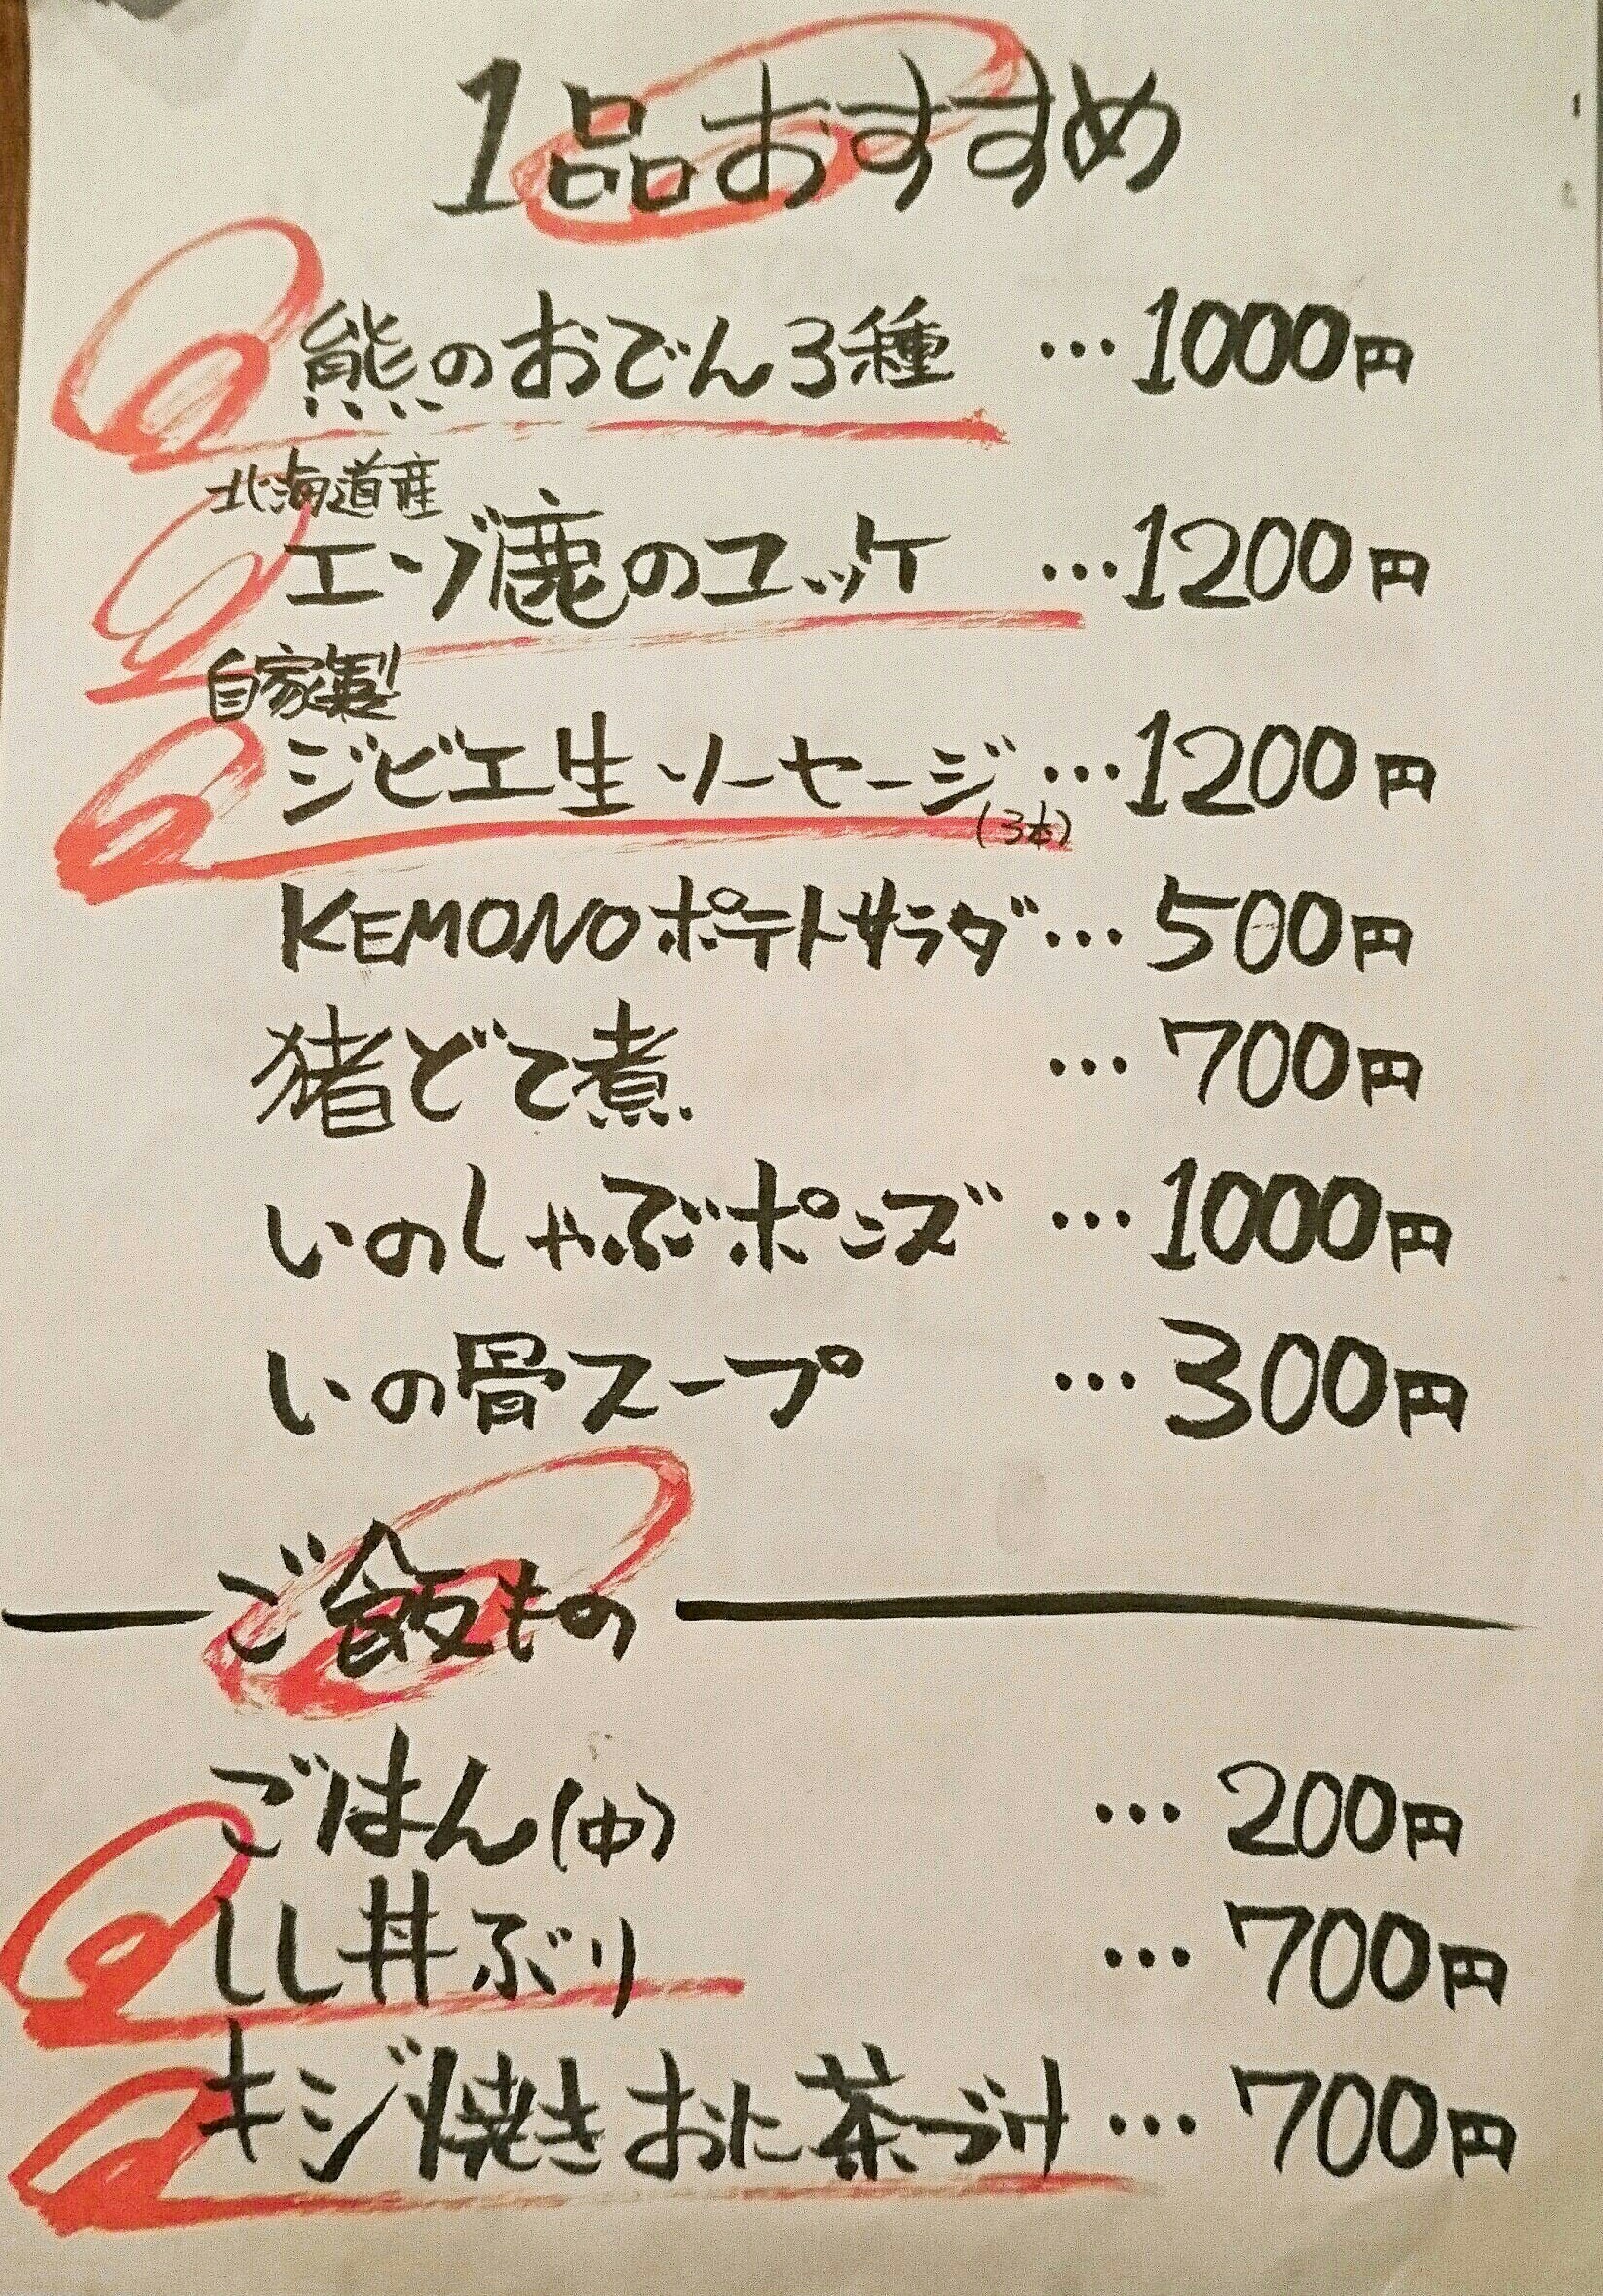 1品おすすめ
熊のおでん3種 …1000円
北海道産
エゾ鹿のユッケ …1200円
自家製
ジビエ生ソーセージ…1200円
(3本)
KEMONOポテトサラダ…500円
猪どて煮 …700円
いのしゃぶポンズ …1000円
いの骨スープ …300円
ご飯もの
ごはん(中) …200円
しし丼ぶり …700円
キジ焼きおに茶づけ…700円